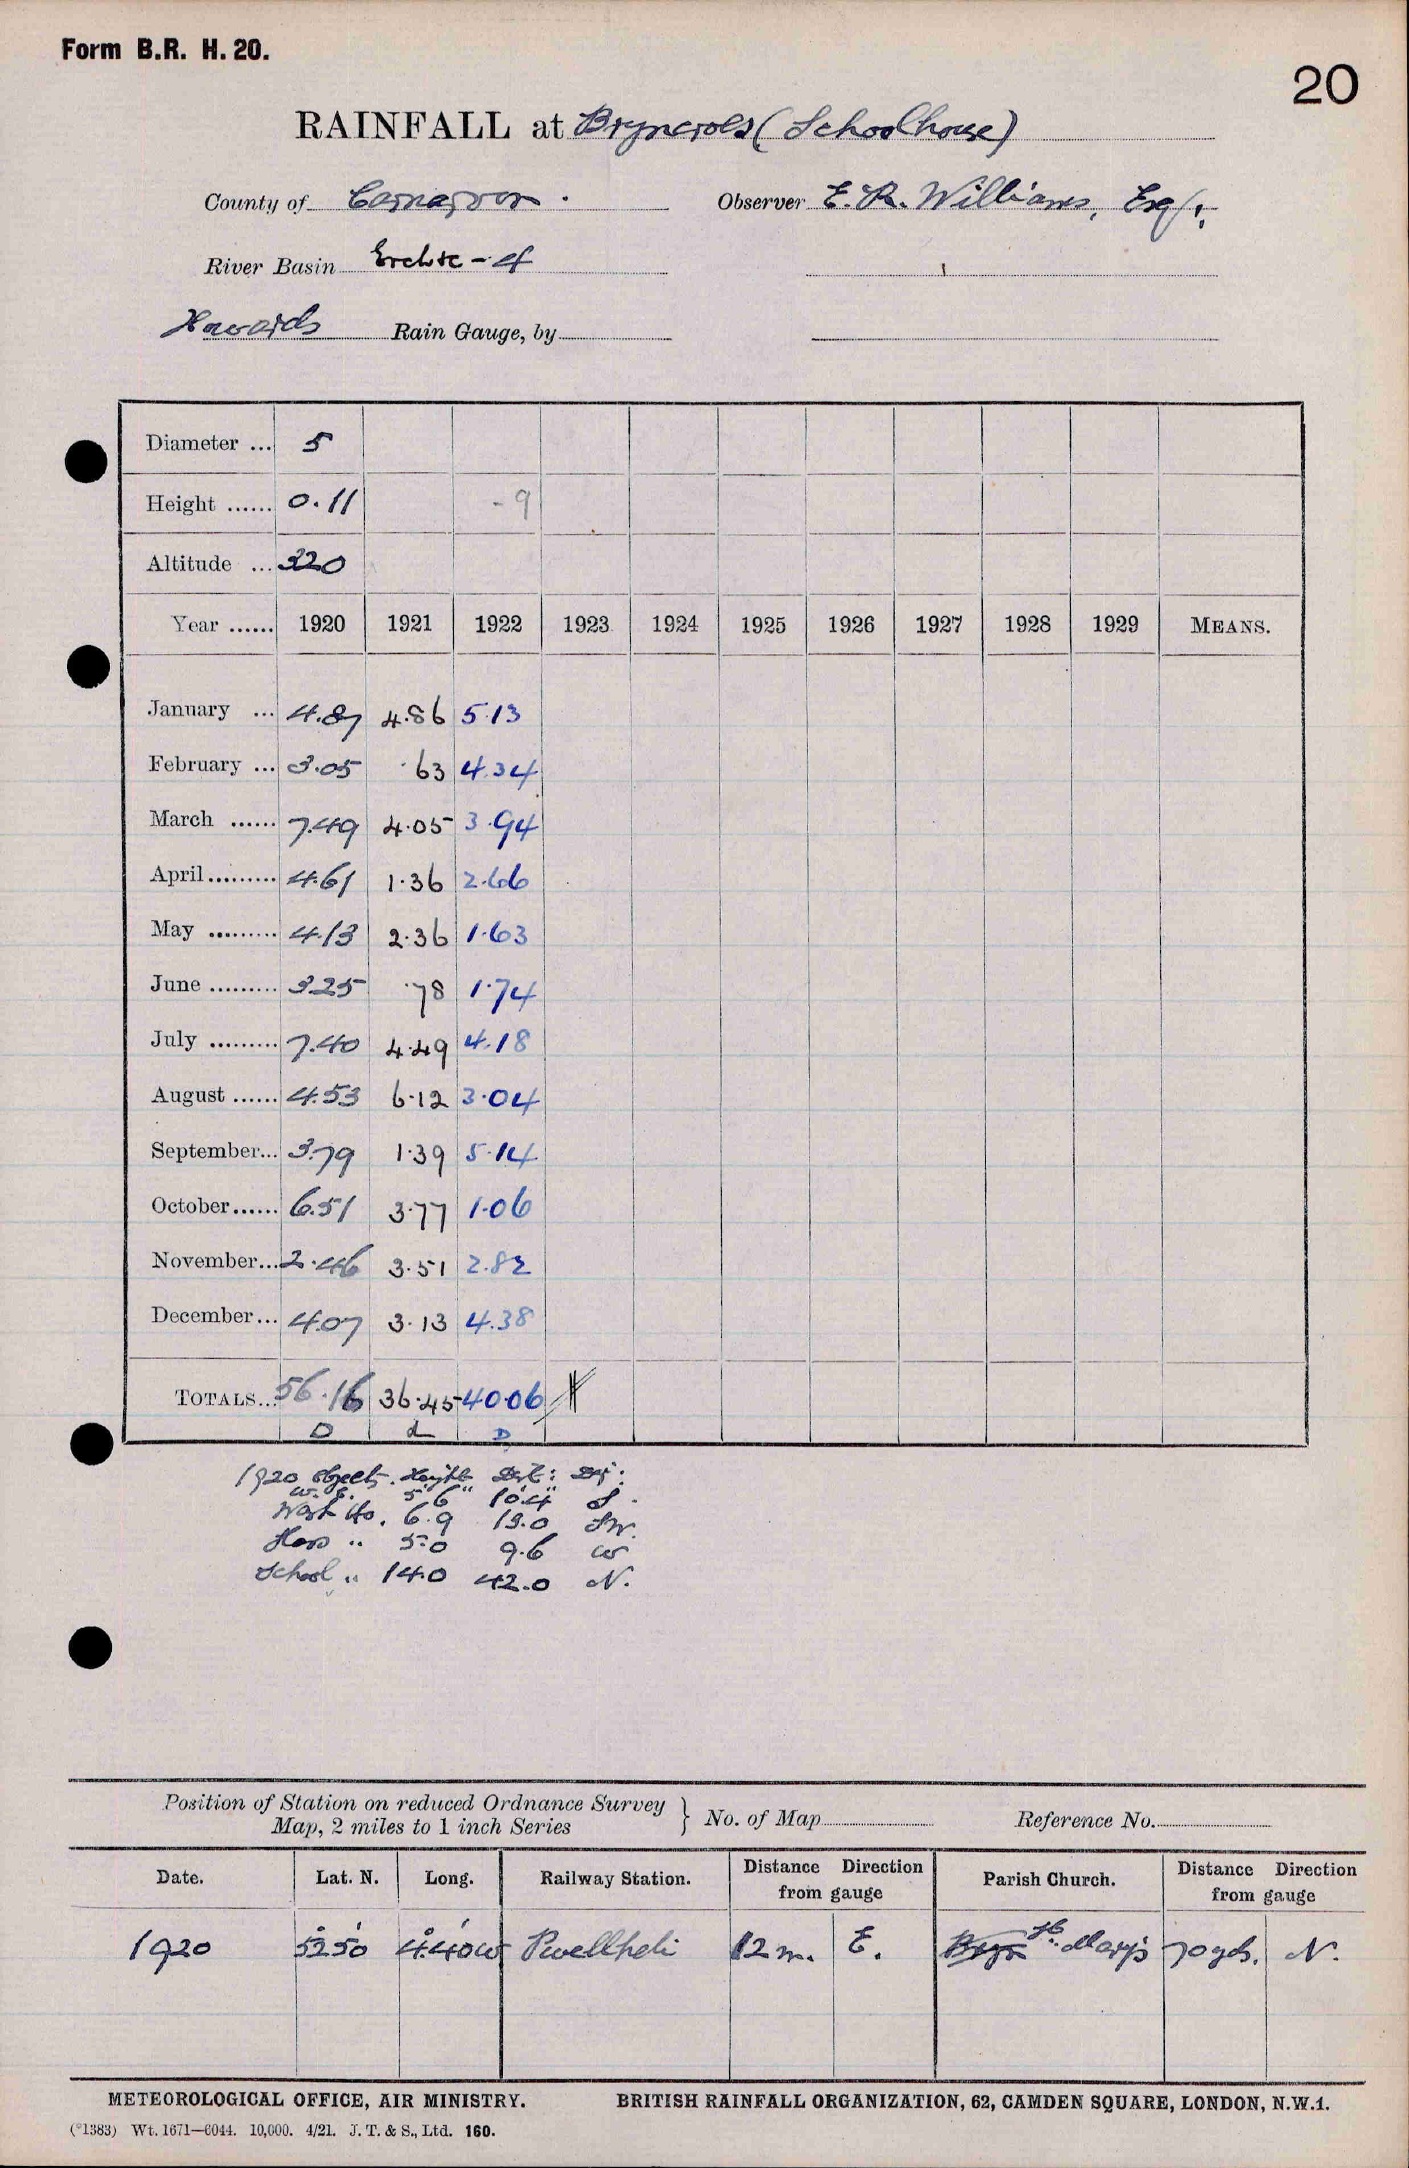 Form B.R. H. 20.
20
RAINFALL at Bryncroes (Schoolhouse)
County of Carnarvon. Observer E. R. Williams, Esq.,
River Basin Erch &c - 4
Howards Rain Gauge, by
Diameter ... 5
Height ...... 0.11 - 9
Altitude ... 320
Year ...... 1920 1921 1922 1923 1924 1925 1926 1927 1928 1929 MEANS.
January ... 4.87 4.86 5.13
February ... 3.05 .63 4.34
March ...... 7.49 4.05 3.94
April ......... 4.61 1.36 2.66
May ......... 4.13 2.36 1.63
June ......... 3.25 .78 1.74
July ......... 7.40 4.49 4.18
August ...... 4.53 6.12 3.04
September... 3.79 1.39 5.14
October...... 6.51 3.77 1.06
November... 2.46 3.51 2.82
December... 4.07 3.13 4.38
TOTALS... 56.16 36.45 40.06
D d D
1920 Objects. Height Dist: Dir:
W. 5'6" 10'4" S.
Wash Ho. 6.9 13.0 SW.
5.0 9.6 W
School " 14.0 42.0 N.
Position of Station on reduced Ordnance Survey
Map, 2 miles to 1 inch Series } No. of Map Reference No.
Date. Lat. N. Long. Railway Station. Distance Direction from gauge Parish Church. Distance Direction from gauge
1920 52°50' 4°40'W Pwllheli 12 m. E. St. Mary's 70 yds. N.
METEOROLOGICAL OFFICE, AIR MINISTRY. BRITISH RAINFALL ORGANIZATION, 62, CAMDEN SQUARE, LONDON, N.W.1.
(*1383) Wt. 1671—6044. 10,000. 4/21. J. T. & S., Ltd. 160.